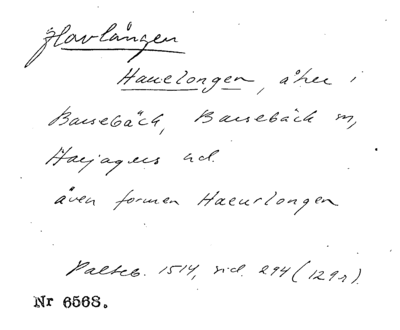 Havlången
Hauelongen, åker i
Barsebäck, Barsebäck sn,
Harjagers hd.
även formen Haeurlongen
Palteb. 1514, sid. 294 (129r).
Nr 6568.